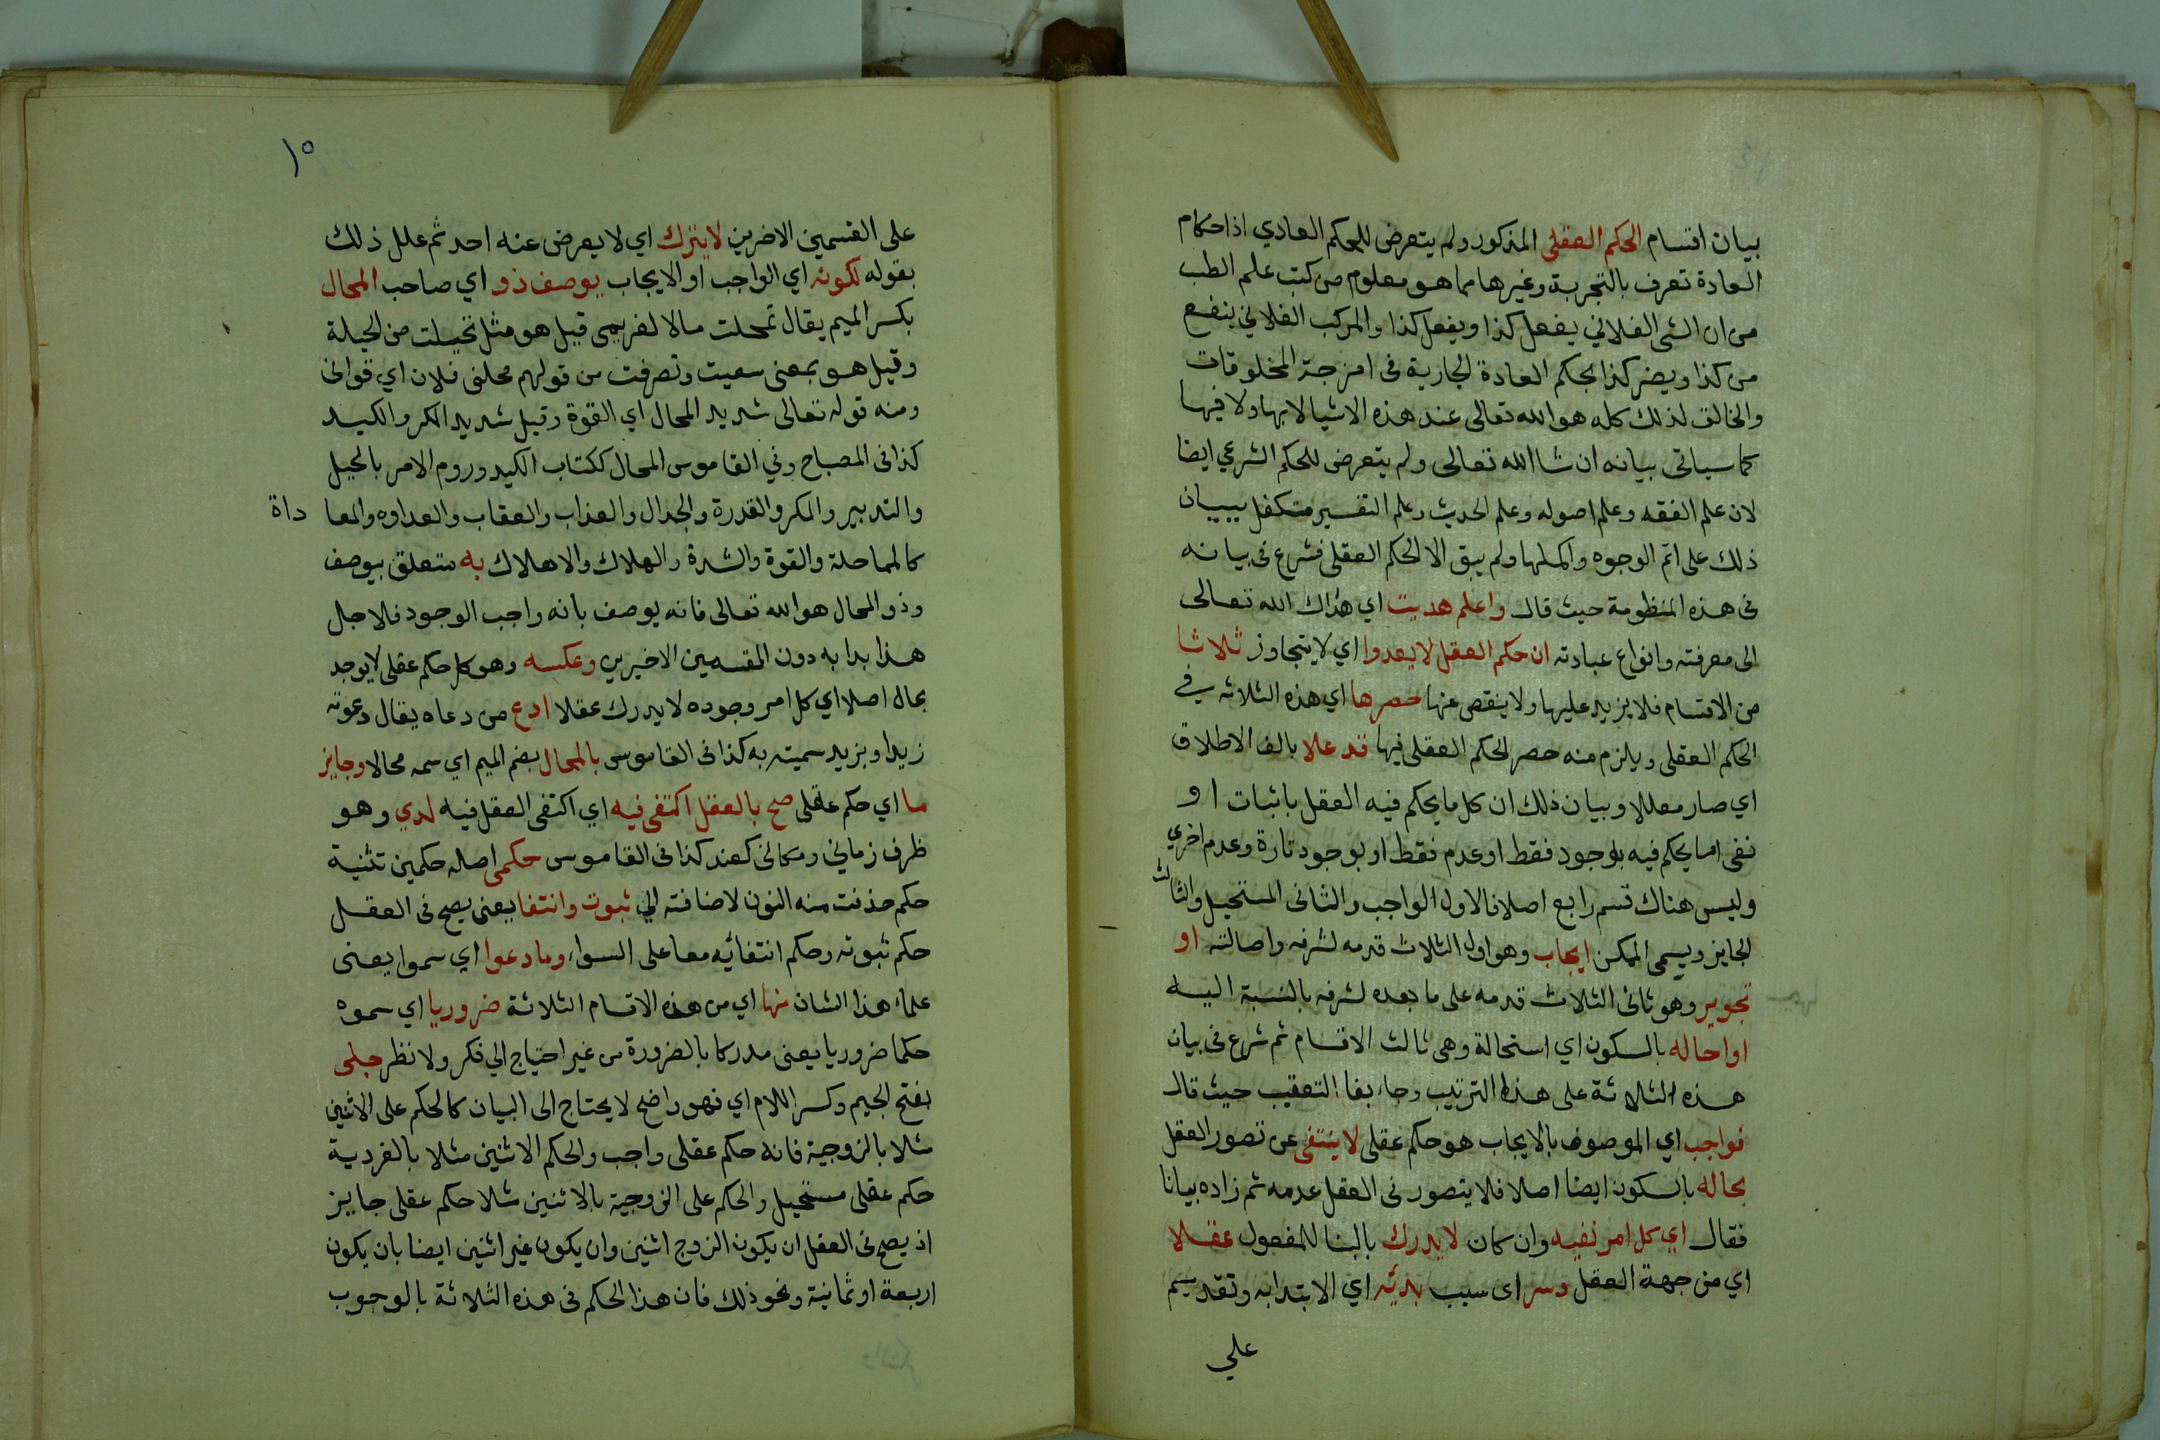 بيان اقسام الحكم العقلي المذكور ولم يتعرض للحكم العادي اذ احكام
العادة تعرف بالتجربة وغيرها مما هو معلوم من كتب علم الطب
من ان الشي الفلاني يفعل كذا ويفعل كذا والمركب الفلاني ينفع
من كذا ويضر كذا بحكم العادة الجارية في امزجة المخلوقات
والخالق لذلك كله هو الله تعالى عند هذه الاشيا لا بها ولا فيها
كما سياتي بيانه ان شا الله تعالى ولم يتعرض للحكم الشرعي ايضا
لان علم الفقه وعلم اصوله وعلم الحديث وعلم التفسير متكفل ببيان
ذلك على اتم الوجوه واكملها ولم يبق الا الحكم العقلي فشرع في بيانه
في هذه المنظومة حيث قال واعلم هديت اي هداك الله تعالى
الى معرفته وانواع عبادته ان حكم العقل لا يعدوا اي لا يتجاوز ثلاثا
من الاقسام فلا يزيد عليها ولا ينقص عنها حصرها اي هذه الثلاثه في
الحكم العقلي ويلزم منه حصر الحكم العقلي فيها قد علا بالف الاطلاق
اي صار معللا وبيان ذلك ان كل ما يحكم فيه العقل باثبات او
نفي اما يحكم فيه بوجود فقط او عدم فقط او بوجود تارة وعدم اخري
وليس هناك قسم رابع اصلا فالاول الواجب والثاني المستحيل والثالث
الجايز ويسمي الممكن ايجاب وهو اول الثلاث قدمه لشرفه واصالته او
تجويز وهو ثاني الثلاث قدمه على ما بعده لشرفه بالنسبة اليه
او احاله بالسكون اي استحالة وهي ثالث الاقسام ثم شرع في بيان
هذه الثلاثة على هذا الترتيب وجاء بفا التعقيب حيث قال
فواجب اي الموصوف بالايجاب هو حكم عقلي لا ينتفي عن تصور العقل
بحاله بالسكون ايضا اصلا فلا يتصور في العقل عدمه ثم زاده بيانا
فقال اي كل امر نفيه وان كان لا يدرك بالبنا للمفعول عقلا
اي من جهة العقل وسر اي سبب بدئه اي الابتدا به وتقديمه
علي
١٥
على القسمين الاخرين لا يترك اي لا يعرض عنه احد ثم علل ذلك
بقوله لكونه اي الواجب او الايجاب يوصف ذو اي صاحب المحال
بكسر الميم يقال تمحلت مالا لغريمي قيل هو مثل تحيلت من الحيلة
وقيل هو بمعنى سعيت وتصرفت من قولهم محلني فلان اي قواني
ومنه قوله تعالى شديد المحال اي القوة وقيل شديد المكر والكيد
كذا في المصباح وفي القاموس المحال ككتاب الكيد وروم الامر بالحيل
والتدبير والمكر والقدرة والجدال والعذاب والعقاب والعداوه والمعا داة
كالمماحلة والقوة والشدة والهلاك والاهلاك به متعلق بيوصف
وذو المحال هو الله تعالى فانه يوصف بانه واجب الوجود فلاجل
هذا بدا به دون القسمين الاخيرين وعكسه وهو كل حكم عقلي لا يوجد
بحال اصلا اي كل امر وجوده لا يدرك عقلا ادع من دعاه يقال دعوته
زيدا وبزيد سميته به كذا في القاموس بالمحال بضم الميم اي سمه محالا وجايز
ما اي حكم عقلي صح بالعقل اكتفي فيه اي اكتفى العقل فيه لدي وهو
ظرف زماني ومكاني كعند كذا في القاموس حكمي اصله حكمين تثنية
حكم حذفت منه النون لاضافته الي ثبوت وانتفا يعني يصح في العقل
حكم ثبوته وحكم انتفائه معا على السواء وما دعوا اي سموا يعني
علماء هذا الشان منها اي من هذه الاقسام الثلاثة ضروريا اي سموه
حكما ضروريا يعني مدركا بالضرورة من غير احتياج الي فكر ولا نظر جلي
بفتح الجيم وكسر اللام اي فهو واضح لا يحتاج الى البيان كالحكم على الاثنين
مثلا بالزوجية فانه حكم عقلي واجب والحكم الاثنين مثلا بالفردية
حكم عقلي مستحيل والحكم على الزوجية بالاثنين مثلا حكم عقلي جايز
اذ يصح في العقل ان يكون الزوج اثنين وان يكون غير اثنين ايضا بان يكون
اربعة او ثمانية ونحو ذلك فان هذا الحكم في هذه الثلاثة بالوجوب